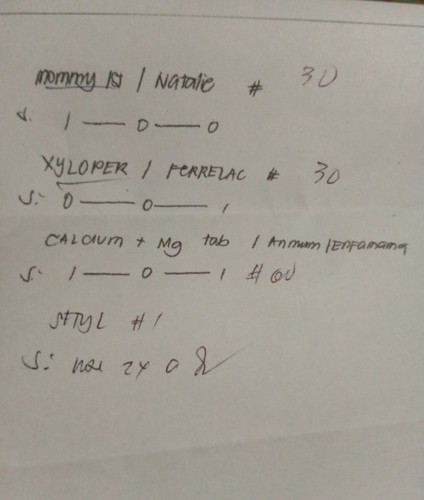 mommy 1st / Natalie # 30
S: 1 — 0 — 0
XYLOPER / FERRELAC # 30
S: 0 — 0 — 1
CALCIUM + Mg tab / Anmum / Enfamama
S: 1 — 0 — 1 # 60
# 1
S: 2x a